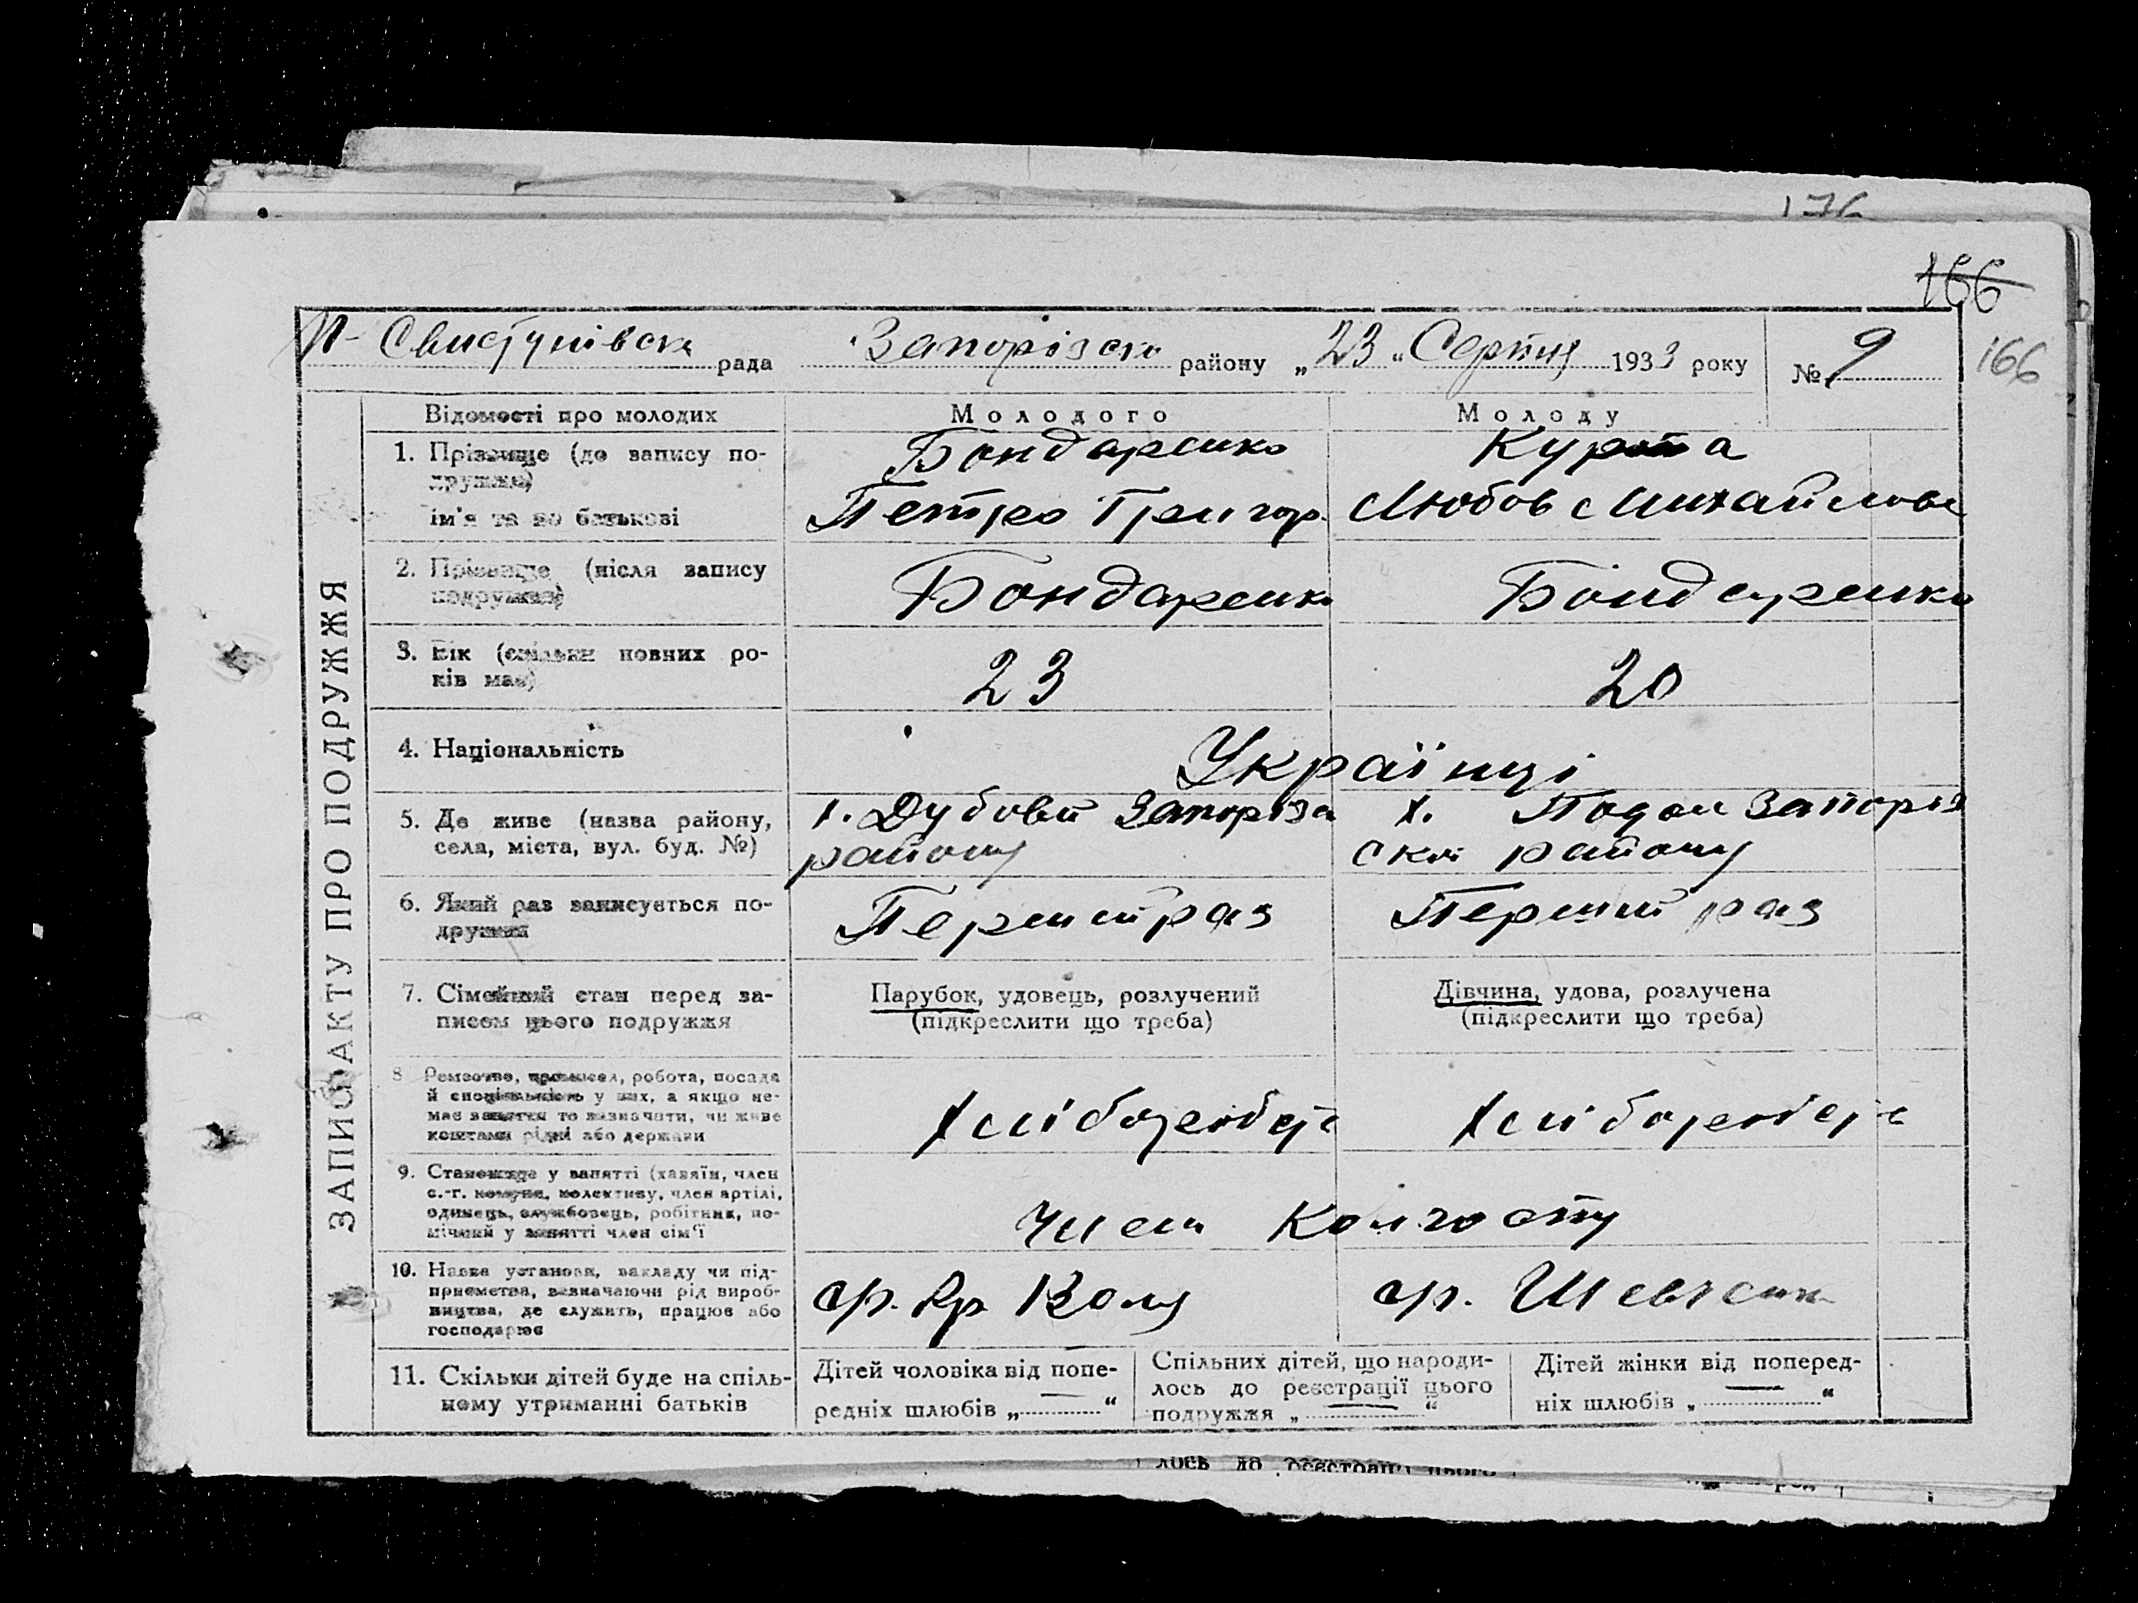 176
166
П-Свистунівськ рада Запорізськ району „23“ Серпня 1933 року № 9
166
ЗАПИС АКТУ ПРО ПОДРУЖЖЯ
Відомості про молодих
Молодого
Молоду
1. Прізвище (до запису по-
дружжя)
ім'я та по батькові
Бондаренко
Петро Григор.
Любов Михайлов
2. Прізвище (після запису
подружжя)
Бондаренко
Бондаренко
3. Вік (скільки повних ро-
ків має)
23
20
4. Національність
Українці
5. Де живе (назва району,
села, міста, вул. буд. №)
х. Дубовий Запорізь
району
х. Запоріз
ськ району
6. Який раз записується по-
дружжя
Перший раз
Перший раз
7. Сімейний стан перед за-
писом цього подружжя
Парубок, удовець, розлучений
(підкреслити що треба)
Дівчина, удова, розлучена
(підкреслити що треба)
8 Ремество, промисел, робота, посада
й спеціяльність у них, а якщо не-
має заняття то зазначити, чи живе
коштами рідні або держави
Хліборобст
Хліборобст
9. Становище у занятті (хазяїн, член
с.-г. комуни, колективу, член артілі,
одинець, службовець, робітник, по-
мічний у занятті член сім'ї
Член Колгоспу
10. Назва установи, закладу чи під-
приємства, зазначаючи рід вироб-
ництва, де служить, працює або
господарює
ар. Воля
ар. Шевченк
11. Скільки дітей буде на спіль-
ному утриманні батьків
Дітей чоловіка від попе-
редніх шлюбів „—“
Спільних дітей, що народи-
лось до реєстрації цього
подружжя „—“
Дітей жінки від поперед-
ніх шлюбів „—“
лось до реєстрації цього